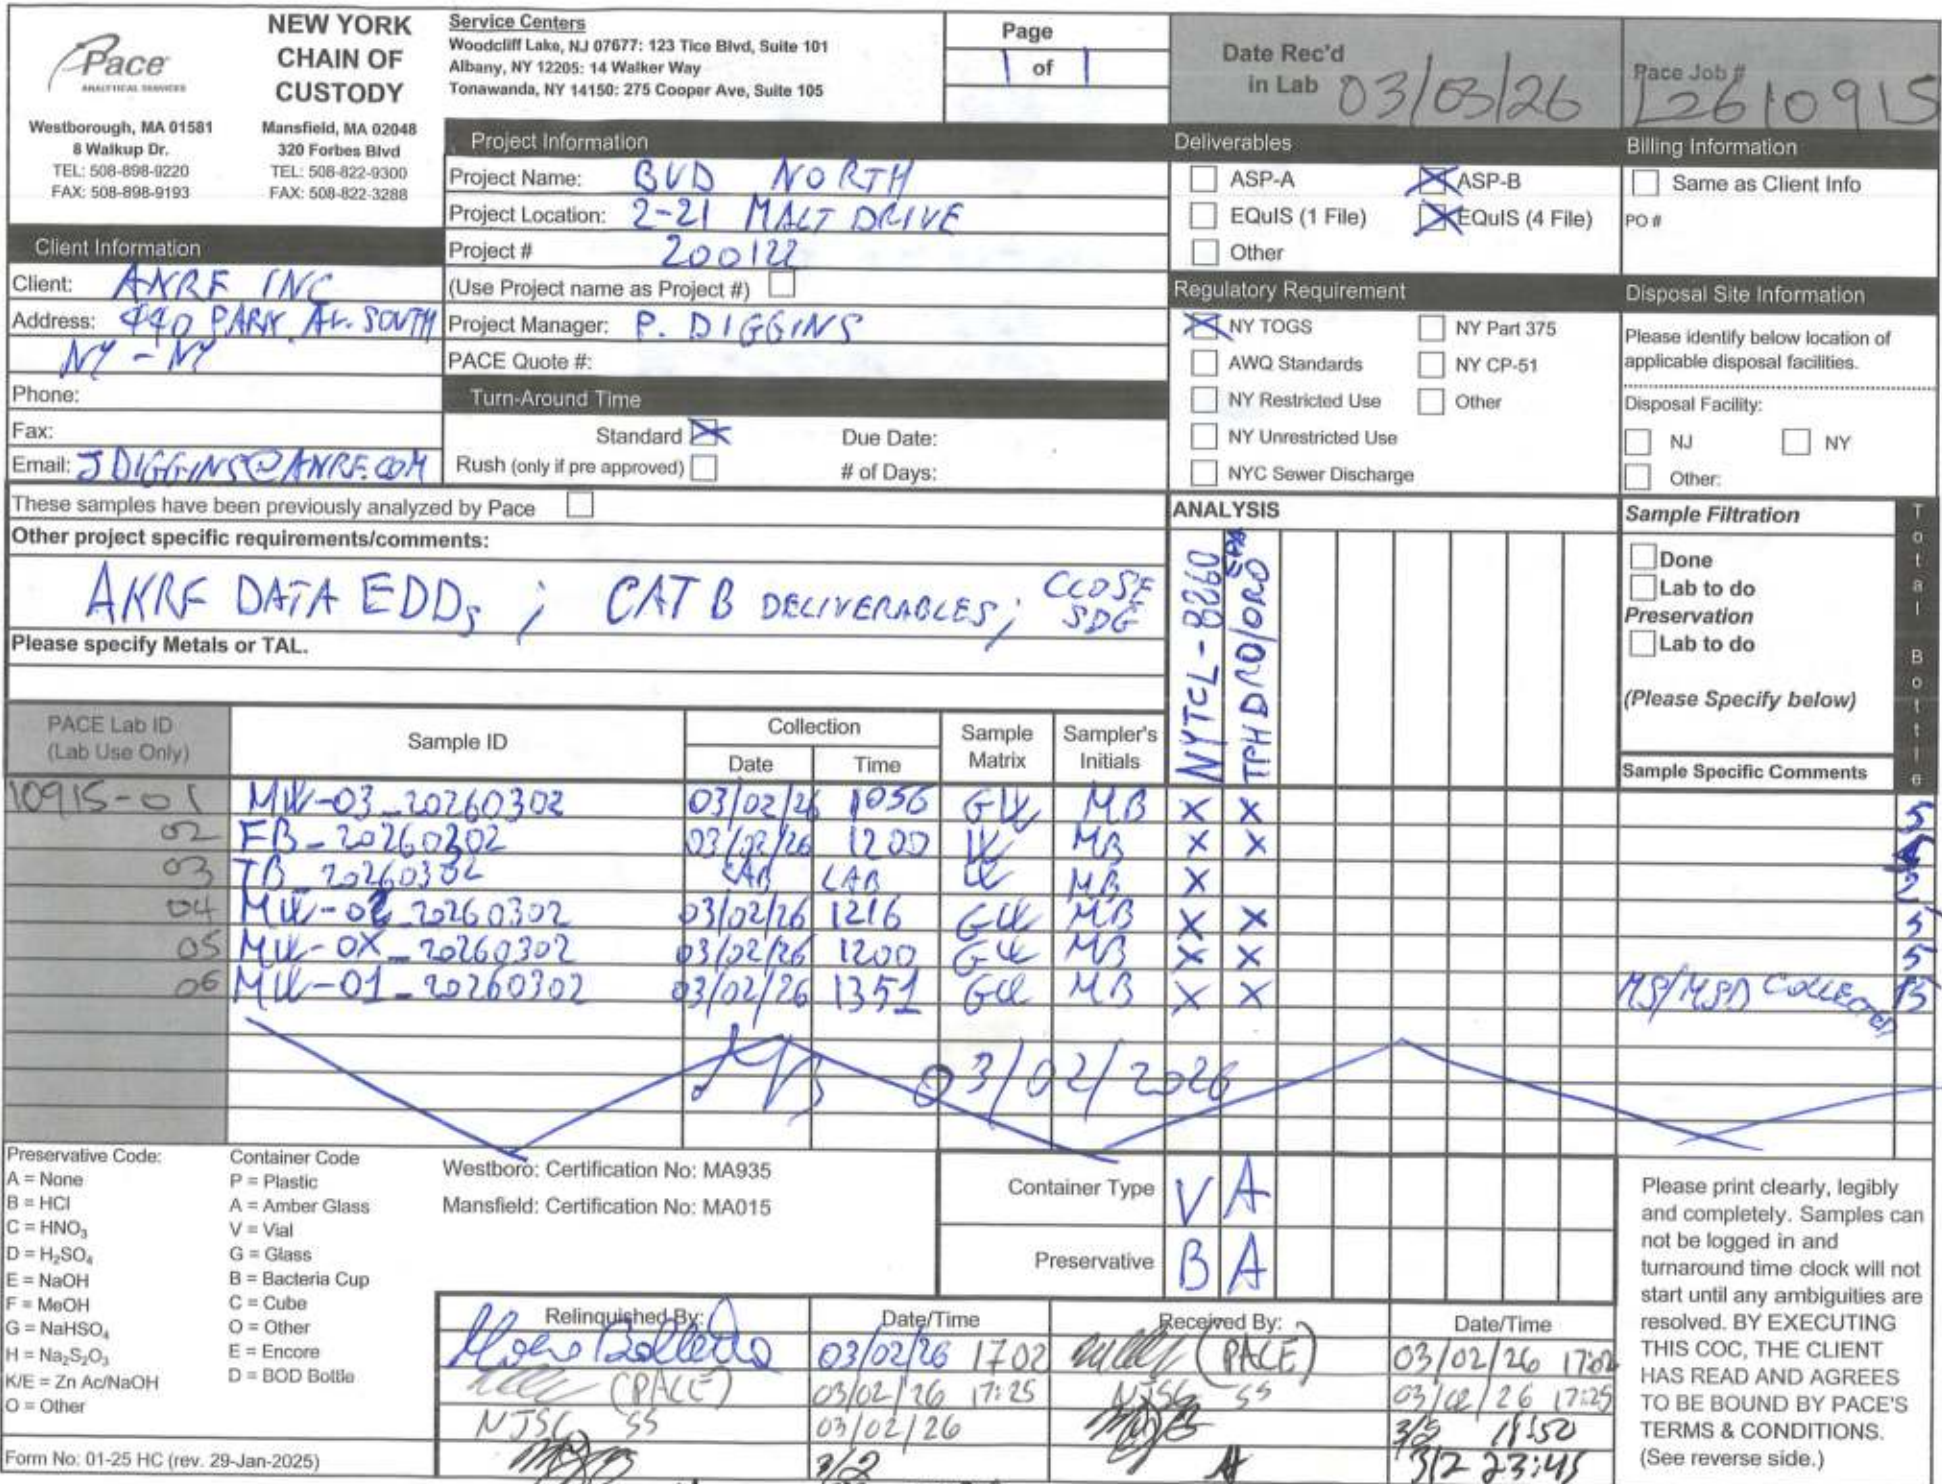 Pace
ANALYTICAL SERVICES
NEW YORK
CHAIN OF
CUSTODY
Westborough, MA 01581
8 Walkup Dr.
TEL: 508-898-9220
FAX: 508-898-9193
Mansfield, MA 02048
320 Forbes Blvd
TEL: 508-822-9300
FAX: 508-822-3288
Service Centers
Woodcliff Lake, NJ 07677: 123 Tice Blvd, Suite 101
Albany, NY 12205: 14 Walker Way
Tonawanda, NY 14150: 275 Cooper Ave, Suite 105
Page
1 of 1
Date Rec'd
in Lab 03/03/26
Pace Job #
L2610915
Client Information
Client: AKRF INC
Address: 440 PARK AV. SOUTH
NY - NY
Phone:
Fax:
Email: JDIGGINS@AKRF.COM
Project Information
Project Name: BVD NORTH
Project Location: 2-21 MALT DRIVE
Project # 200122
(Use Project name as Project #)
Project Manager: P. DIGGINS
PACE Quote #:
Turn-Around Time
Standard Due Date:
Rush (only if pre approved) # of Days:
Deliverables
ASP-A ASP-B
EQuIS (1 File) EQuIS (4 File)
Other
Regulatory Requirement
NY TOGS NY Part 375
AWQ Standards NY CP-51
NY Restricted Use Other
NY Unrestricted Use
NYC Sewer Discharge
Billing Information
Same as Client Info
PO #
Disposal Site Information
Please identify below location of
applicable disposal facilities.
Disposal Facility:
NJ NY
Other:
These samples have been previously analyzed by Pace
Other project specific requirements/comments:
AKRF DATA EDDs ; CAT B DELIVERABLES; CLOSE SDG
Please specify Metals or TAL.
ANALYSIS
NYTCL - 8260
TPH DRO/ORO EPA
Sample Filtration
Done
Lab to do
Preservation
Lab to do
(Please Specify below)
Total Bottle
PACE Lab ID
(Lab Use Only)
Sample ID
Collection
Date Time
Sample
Matrix
Sampler's
Initials
Sample Specific Comments
10915-01 MW-03_20260302 03/02/26 1056 GW MB X X 5
02 FB_20260302 03/02/26 1200 W MB X X
03 TB_20260302 LAB LAB W MB X 2
04 MW-02_20260302 03/02/26 1216 GW MB X X 5
05 MW-0X_20260302 03/02/26 1200 GW MB X X 5
06 MW-01_20260302 03/02/26 1351 GW MB X X MS/MSD COLLECTED 15
MB 03/02/2026
Preservative Code:
A = None
B = HCl
C = HNO₃
D = H₂SO₄
E = NaOH
F = MeOH
G = NaHSO₄
H = Na₂S₂O₃
K/E = Zn Ac/NaOH
O = Other
Container Code
P = Plastic
A = Amber Glass
V = Vial
G = Glass
B = Bacteria Cup
C = Cube
O = Other
E = Encore
D = BOD Bottle
Westboro: Certification No: MA935
Mansfield: Certification No: MA015
Container Type V A
Preservative B A
Relinquished By: Date/Time Received By: Date/Time
03/02/26 1702 (PACE) 03/02/26 17:02
(PACE) 03/02/26 17:25 NJSC SS 03/02/26 17:25
NJSC SS 03/02/26
3/2 3/2 23:45
Please print clearly, legibly
and completely. Samples can
not be logged in and
turnaround time clock will not
start until any ambiguities are
resolved. BY EXECUTING
THIS COC, THE CLIENT
HAS READ AND AGREES
TO BE BOUND BY PACE'S
TERMS & CONDITIONS.
(See reverse side.)
Form No: 01-25 HC (rev. 29-Jan-2025)